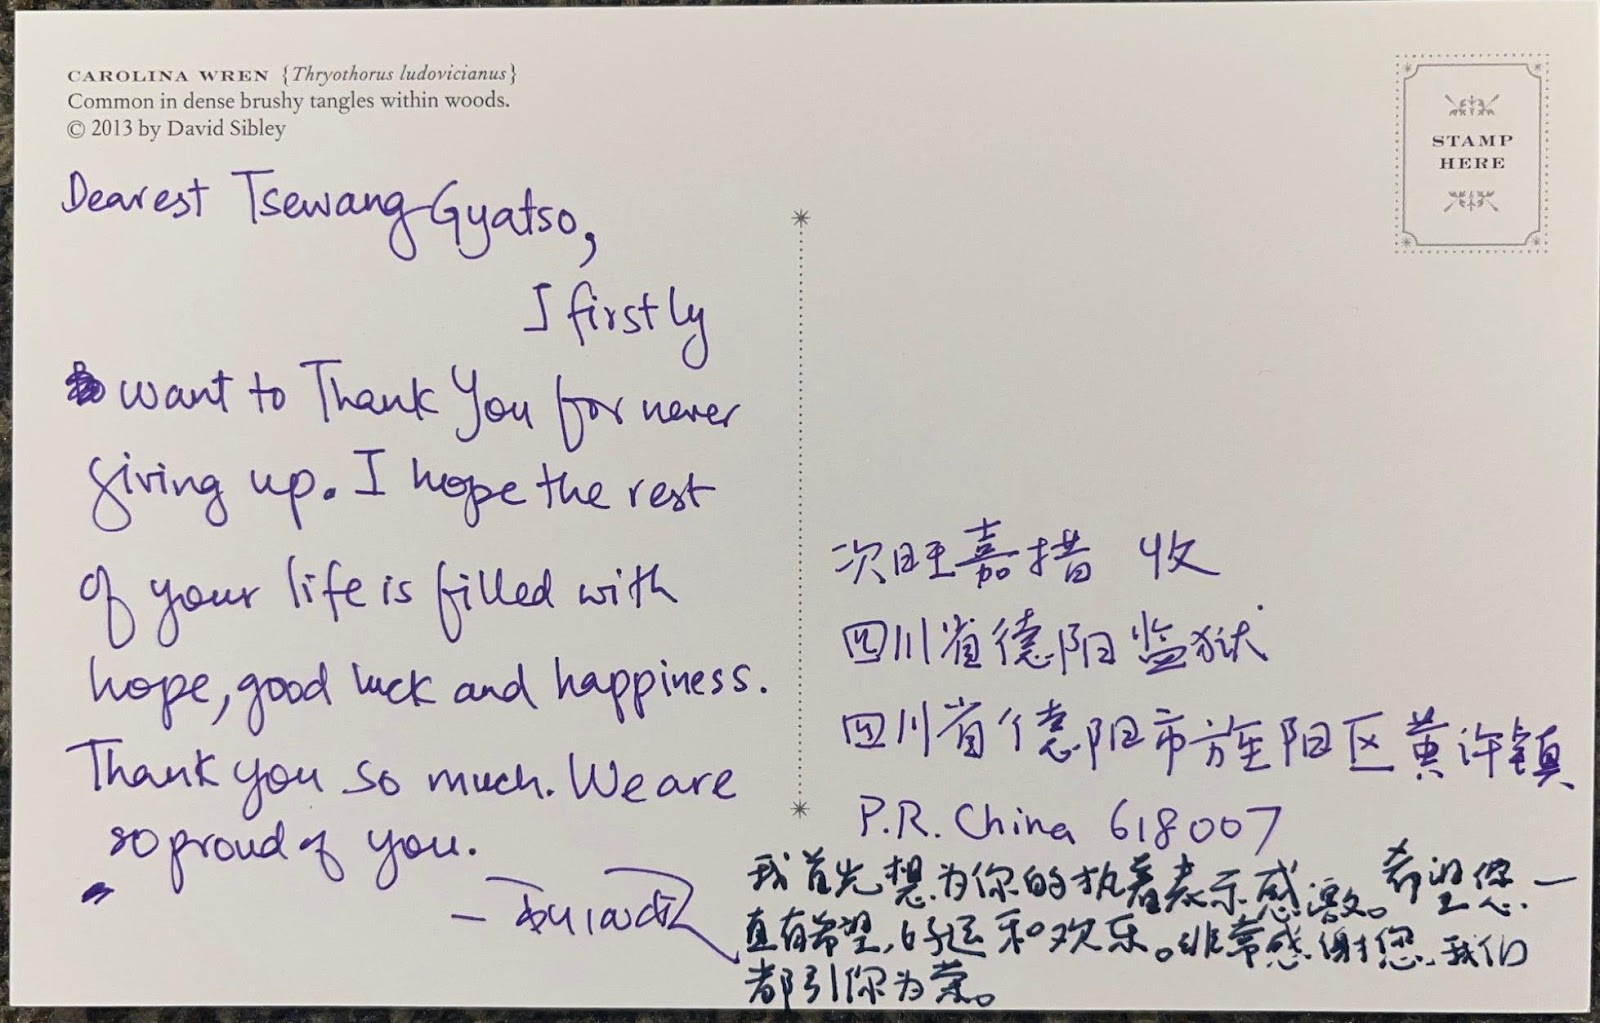 CAROLINA WREN {Thryothorus ludovicianus}
Common in dense brushy tangles within woods.
© 2013 by David Sibley
STAMP
HERE
Dearest Tsewang Gyatso,
I firstly
want to Thank You for never
giving up. I hope the rest
of your life is filled with
hope, good luck and happiness.
Thank you so much. We are
so proud of you.
次旺嘉措 收
四川省德阳监狱
四川省德阳市旌阳区黄许镇
P.R. China 618007
我首先想为你的执着表示感激。希望您一
直有希望,好运和欢乐。非常感谢您,我们
都引你为荣。